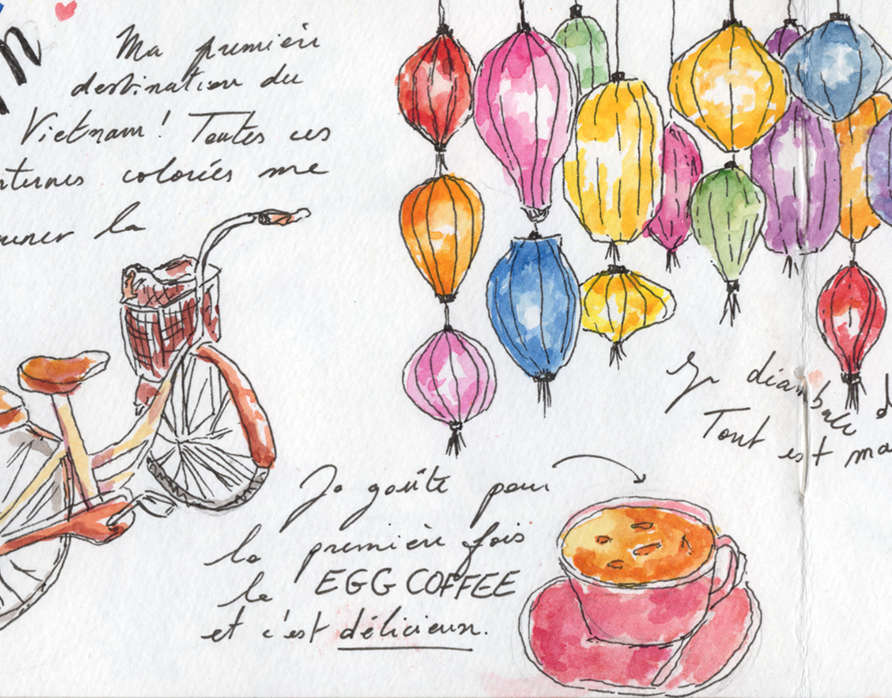 Ma première
destination du
Vietnam! Toutes ces
colorées me
la
Je goûte pour
la première fois
le EGG COFFEE
et c'est délicieux.
Je déambule
Tout est